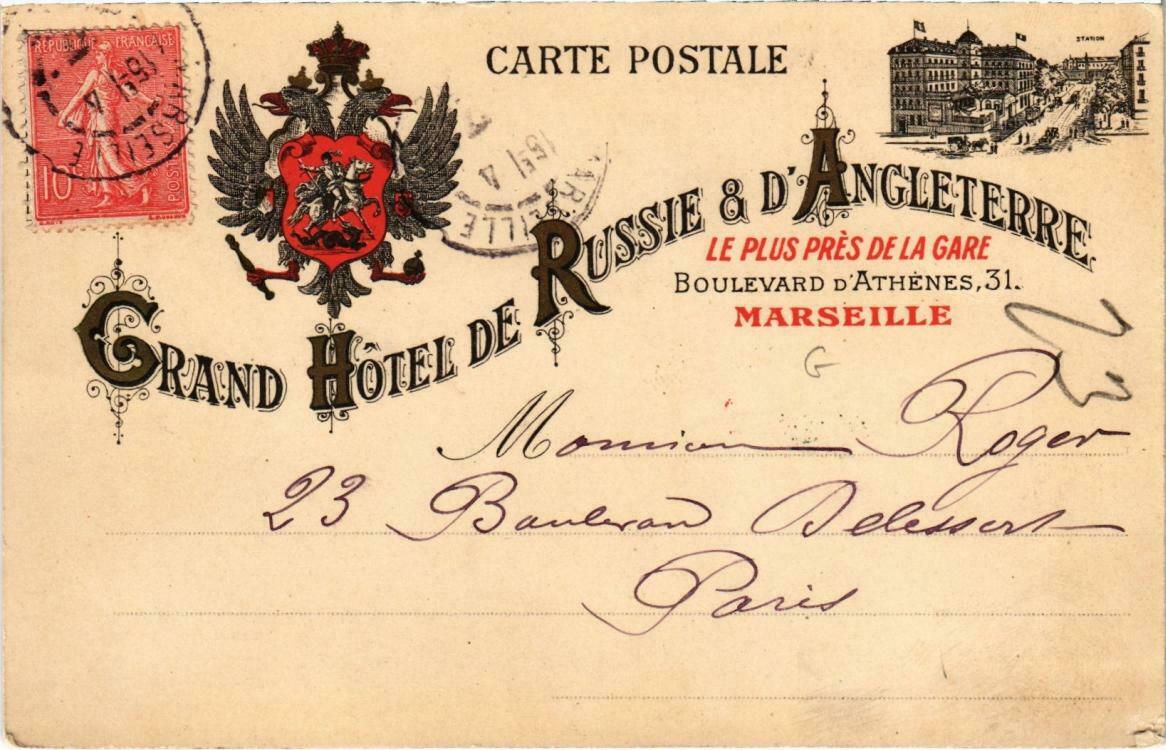 CARTE POSTALE
STATION
RÉPUBLIQUE FRANÇAISE
10
POSTES
MARSEILLE
15E
4
MARSEILLE
15E
4
GRAND HÔTEL DE RUSSIE & D'ANGLETERRE
LE PLUS PRÈS DE LA GARE
BOULEVARD D'ATHÈNES, 31.
MARSEILLE
G
Monsieur Roger
23 Boulevard Delessert
Paris